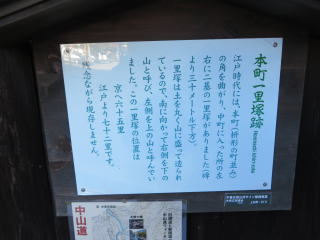 本町一里塚跡
江戸時代には、本町(枡形の町並み)
の角を曲がり、中町に入った所の左
右に二基の一里塚がありました(碑
より三十メートル下方)。
一里塚は土を丸く山に盛って造られ
ているので、南に向かって右側を下の
山と呼び、左側を上の山と呼んでい
ました。この一里塚の位置は
京へ六十五里
江戸より七十二里です。
残念ながら現存しません。
中山道